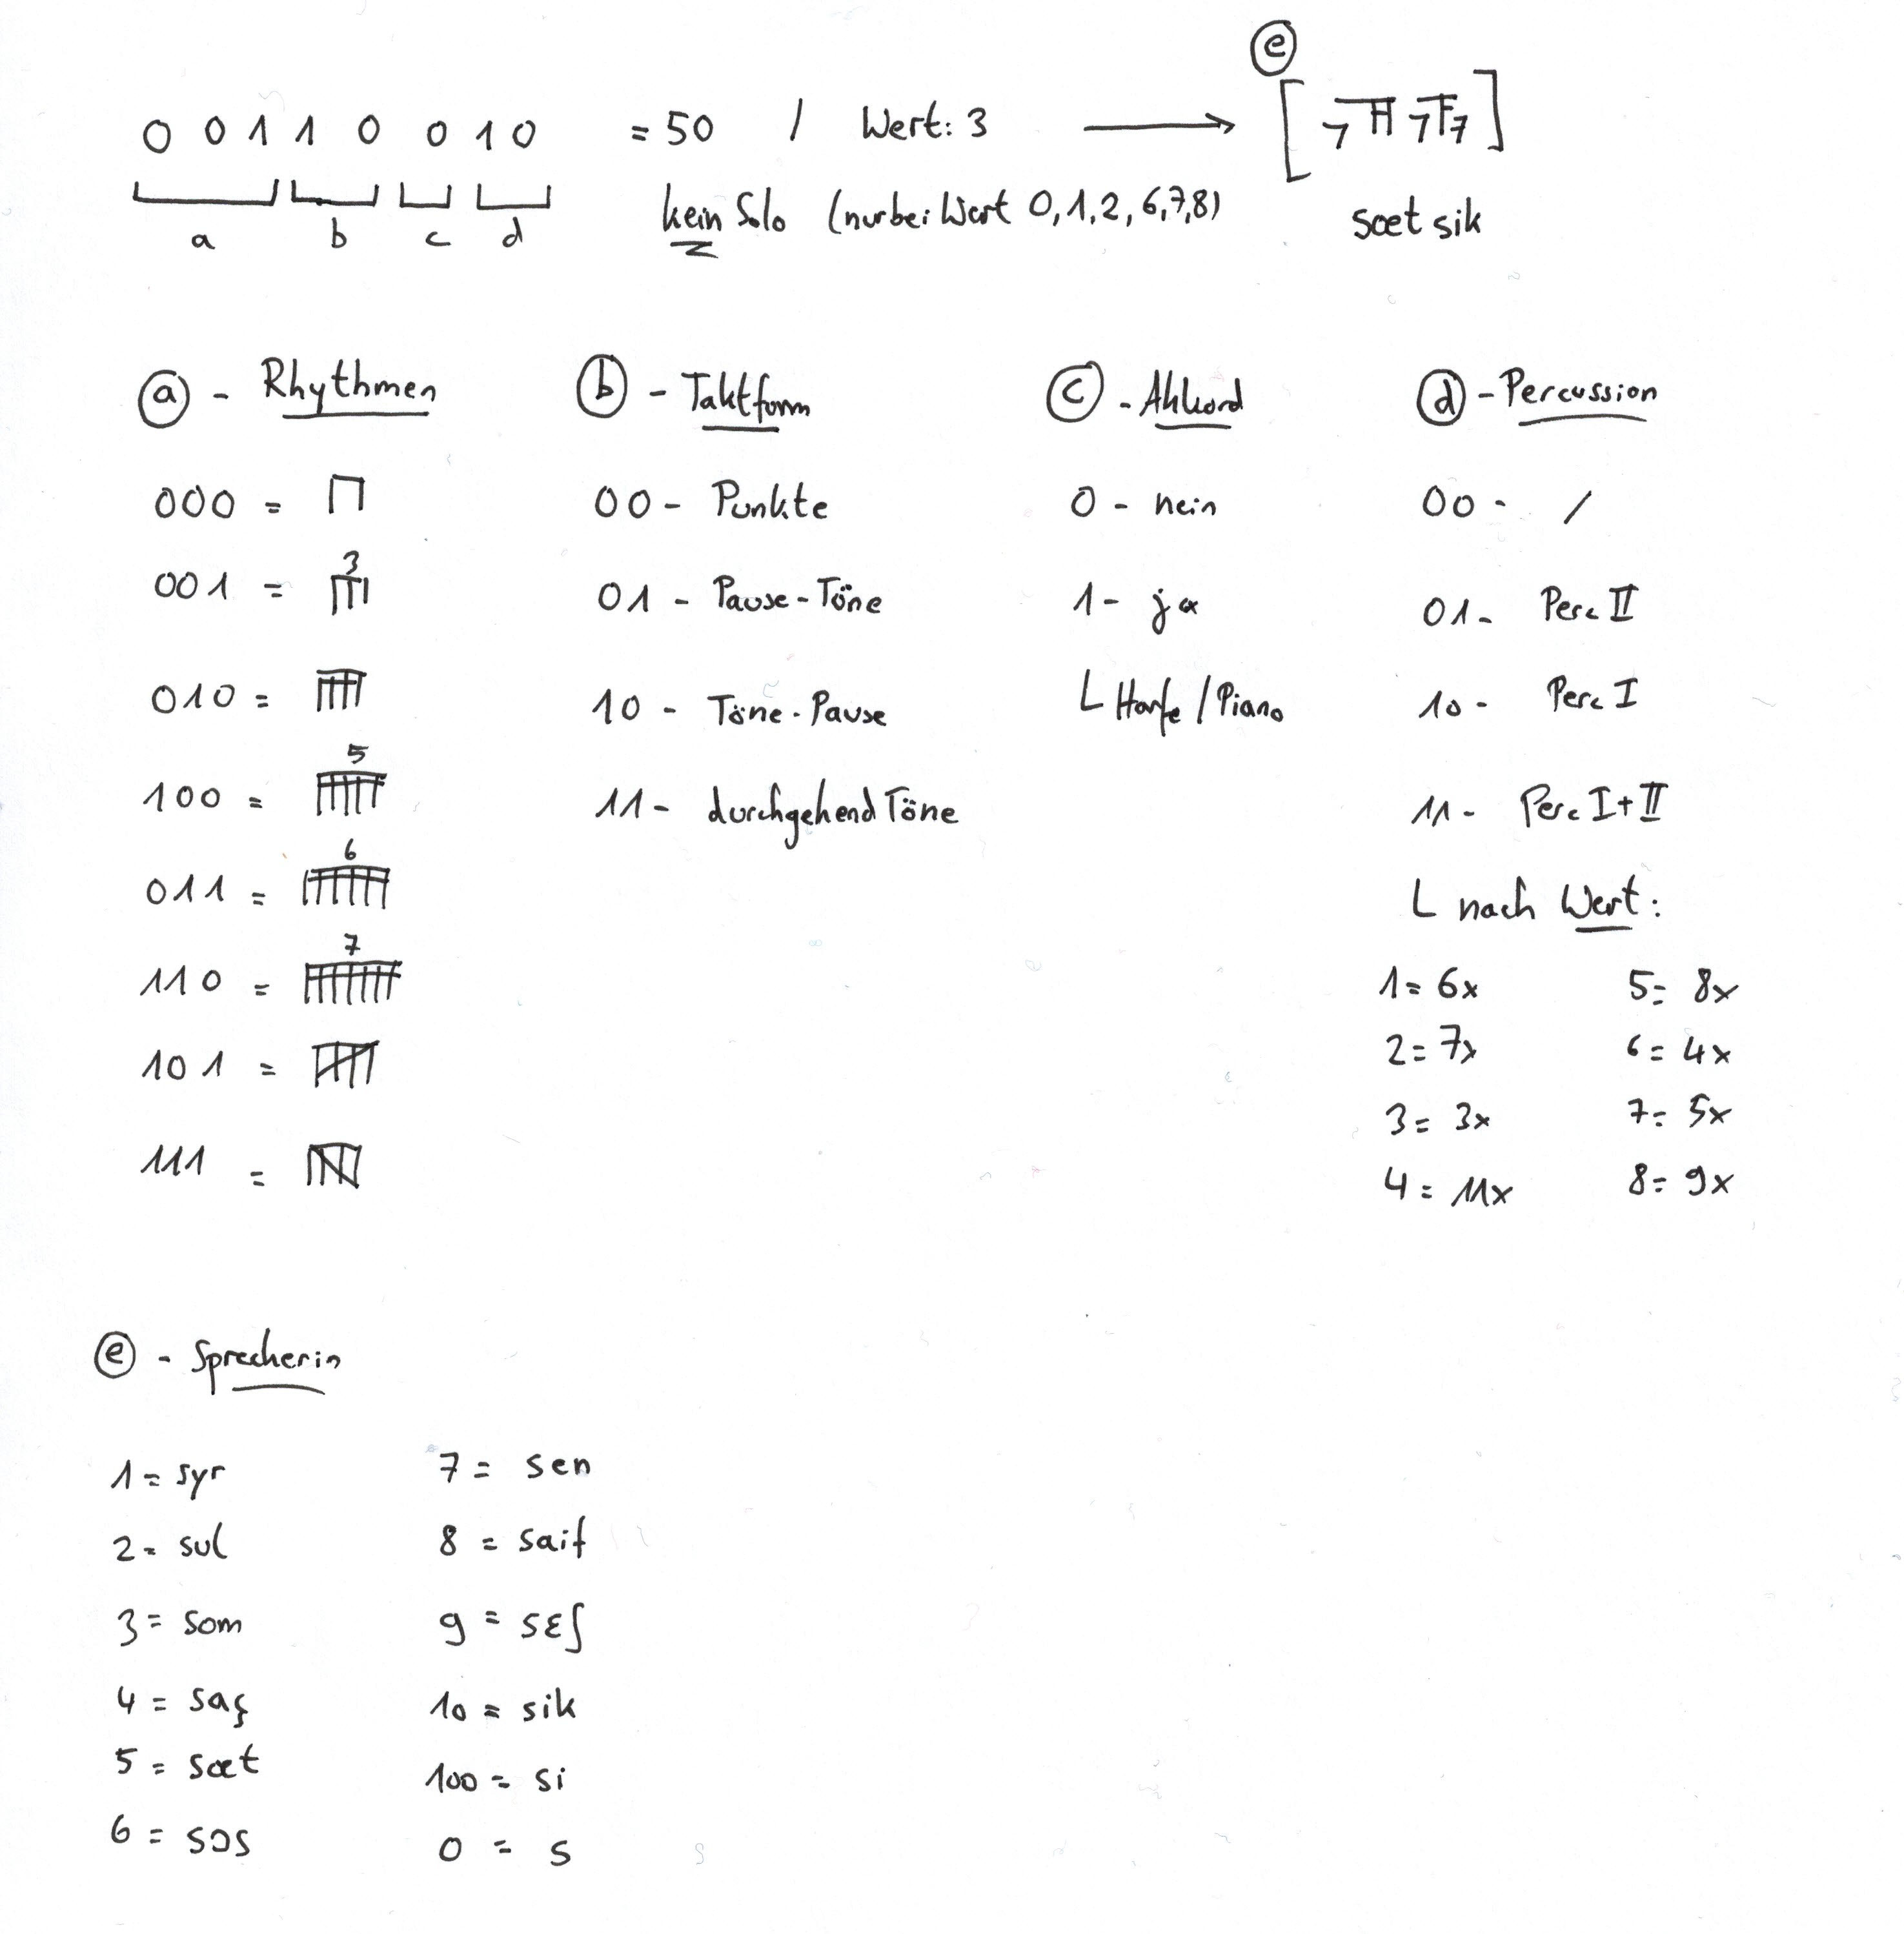 e
0 0 1 1 0 0 1 0 = 50 / Wert: 3
a b c d
kein Solo (nur bei Wert 0,1,2,6,7,8)
sœt sik
a - Rhythmen
000 =
001 = 3
010 =
100 = 5
011 = 6
110 = 7
101 =
111 =
b - Taktform
00 - Punkte
01 - Pause-Töne
10 - Töne-Pause
11 - durchgehend Töne
c - Akkord
0 - nein
1 - ja
L Harfe / Piano
d - Percussion
00 - /
01 - Perc II
10 - Perc I
11 - Perc I + II
L nach Wert:
1 = 6x 5 = 8x
2 = 7x 6 = 4x
3 = 3x 7 = 5x
4 = 11x 8 = 9x
e - Sprecherin
1 = syr
2 = sul
3 = som
4 = saş
5 = sœt
6 = sɔs
7 = sen
8 = saif
9 = sɛʃ
10 = sik
100 = si
0 = s